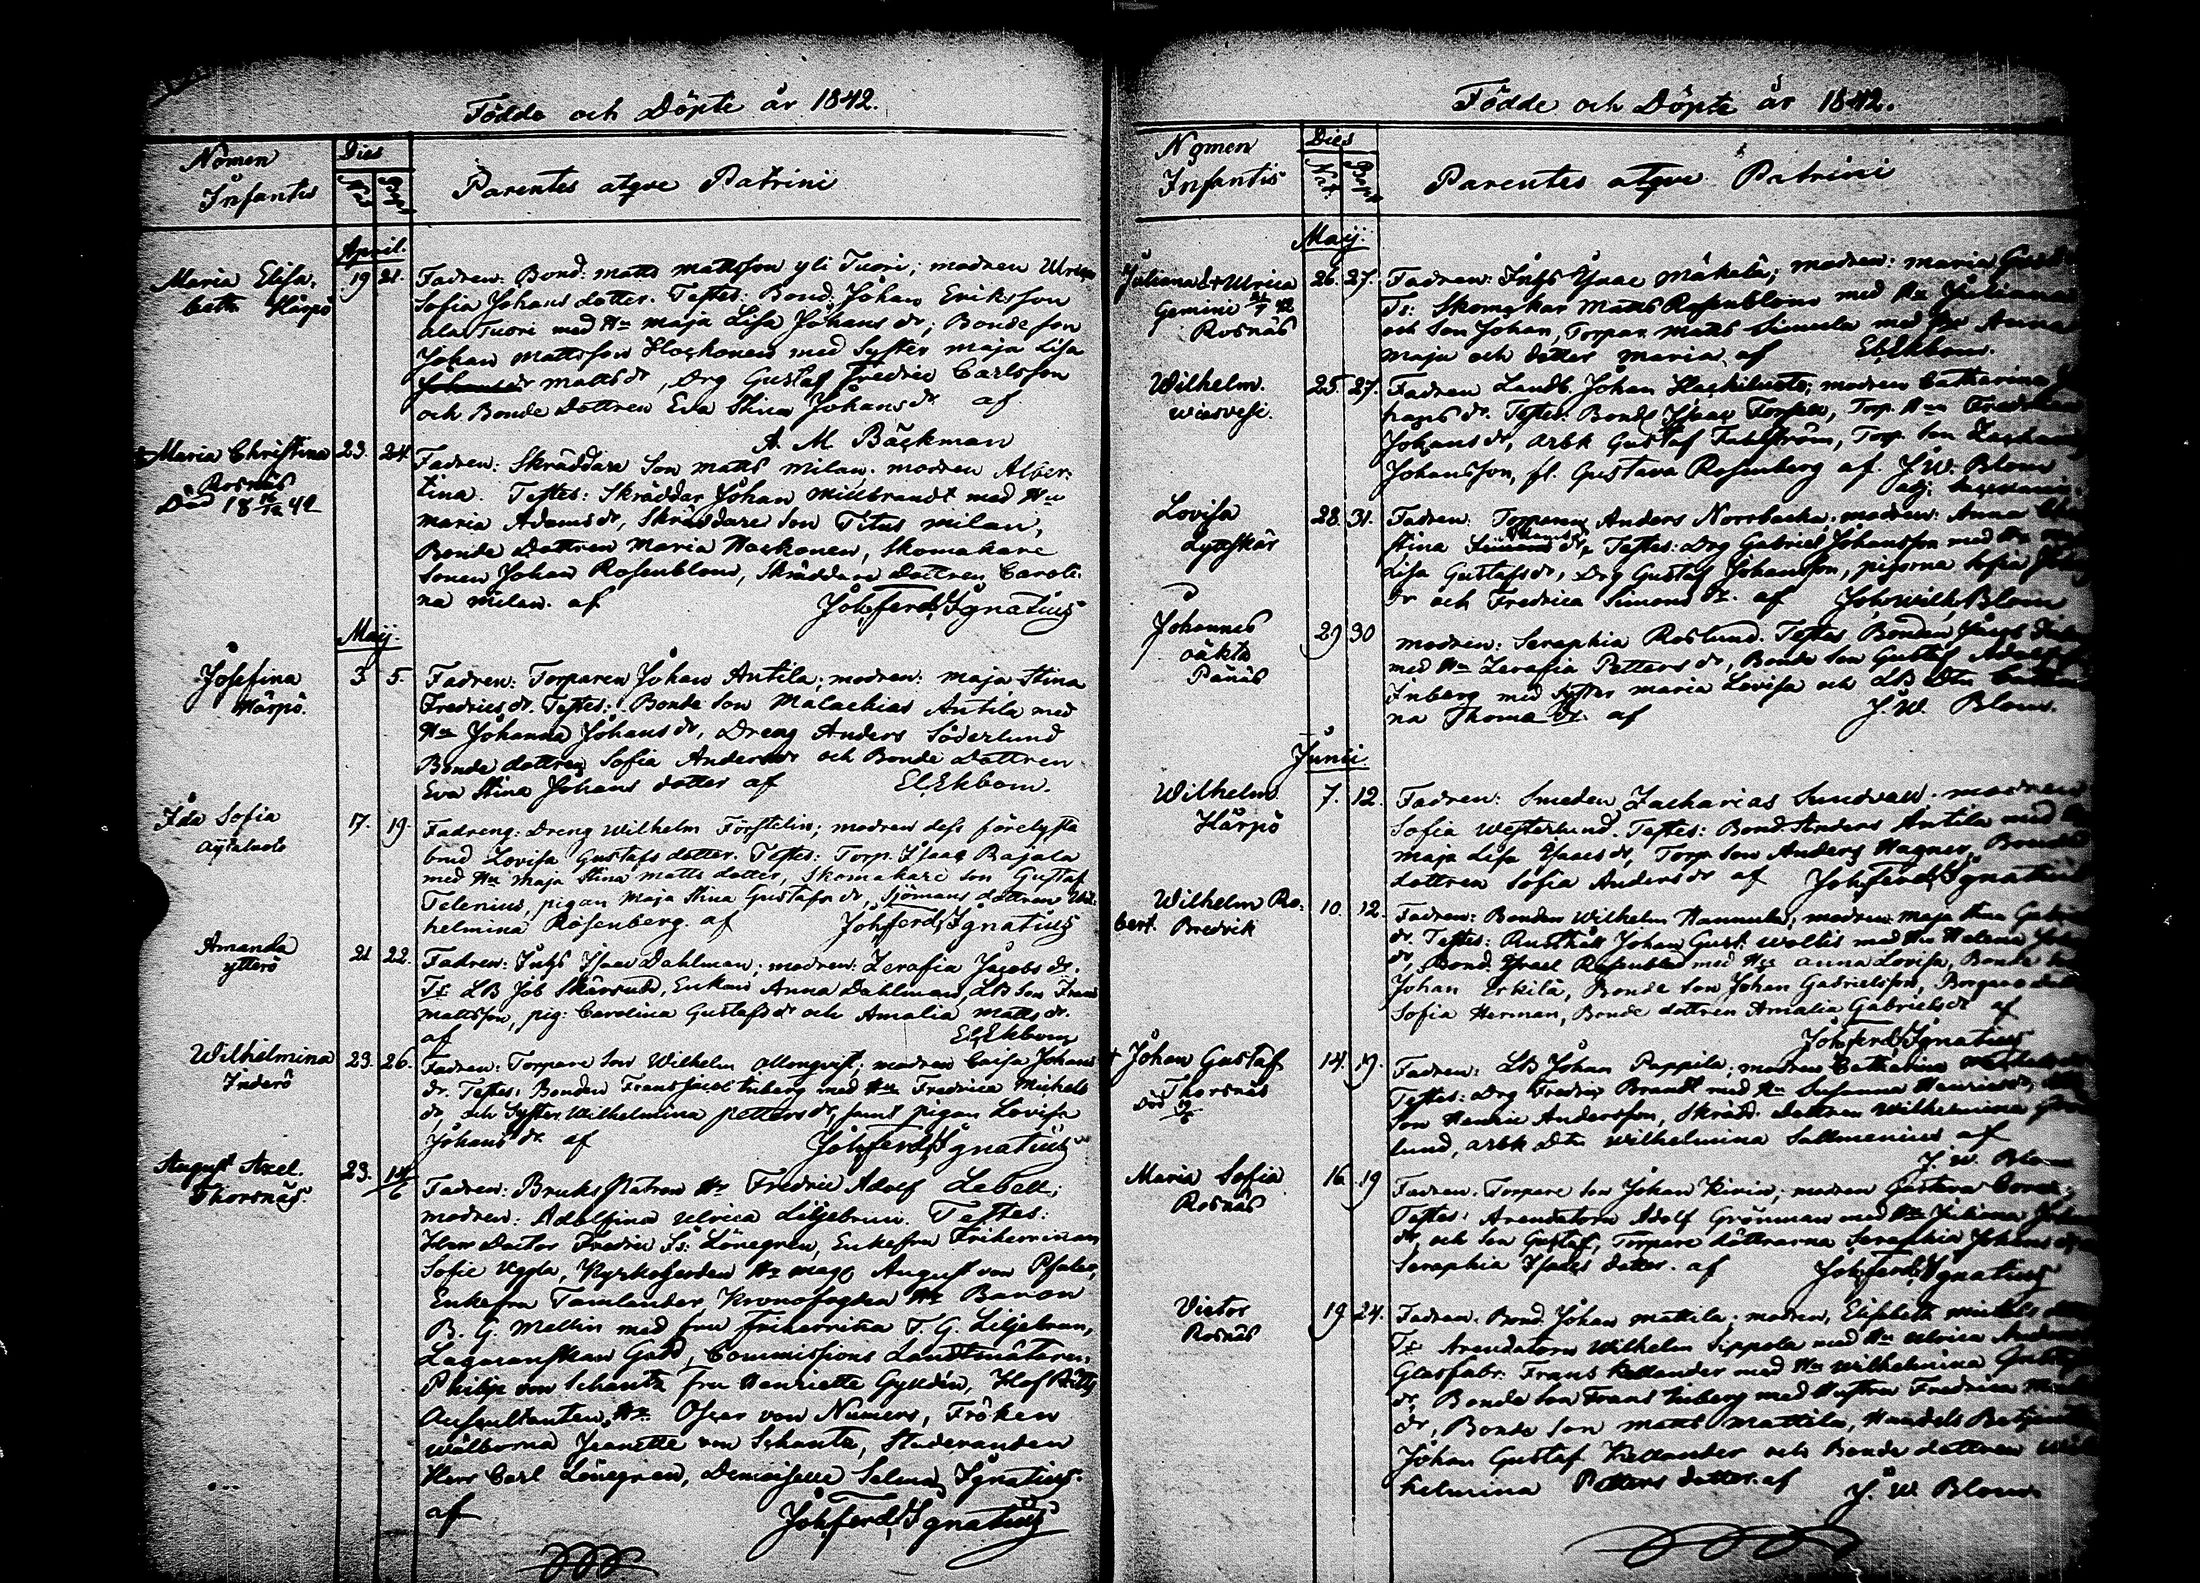 Födde och Döpte år 1842.
Nomen Infantis
Dies
Nat. Bapt.
Parentes atqve Patrini
April.
Maria Elisa-
beth Härpö
19 21.
Fadren: Bond: Matts Mattsson yli Tuori; modren Ulrica
Sofia Johans dotter. Testes: Bond. Johan Eriksson
ala Tuori med Hu maja Lisa Johans dr; Bondeson
Johan Mattsson Hackonen med Syster maja Lisa
matts dr, Drg Gustaf Fredric Carlsson
och Bonde dottren Eva Stina Johans dr af
A. M. Bäckman
Maria Christina
Rosnäs
Död 18 42
23. 24
Fadren: Skräddare Son Matts Milan. modren Alber-
tina. Testes: Skräddar Johan Millbrandt med Hu
maria Adams dr, Skräddare Son Titus Milan,
Bonde Dottren Maria Hackonen, Skomakare
Sonen Johan Rosenblom, Skräddare Dottren Caroli-
na Milan. af Joh: ferd: Ignatius
Maij.
Josefina
Härpö.
3. 5.
Fadren: Torparen Johan Antila; modren: maja Stina
Fredrics dr. Testes: Bonde Son Malachias Antila med
Hu Johanna Johans dr, Dreng Anders Söderlund
Bonde dottren Sofia Anders dr och Bonde Dottren
Eva Stina Johans dotter af El. Ekbom.
Ida Sofia
17. 19.
Fadreng: Dreng Wilhelm Förstelin; modren dess förelysta
brud Lovisa Gustafs dotter. Testes: Torp. Isaac Rajala
med Hu maja Stina matts dotter, Skomakare Son Gustaf
Telenius, pigan Maja Stina Gustafs dr, Sjömans dottren Wil-
helmina Rosenberg. af Joh: ferd: Ignatius
Amanda
ytterö
21 22.
Fadren: Inhs Isaac Dahlman; modren: Zerafia Jacobs dr.
Ts LB Job Skärsund, Enkan Anna Dahlman, LB Son Frans
Mattsson, pig: Carolina Gustafs dr och Amalia Matts dr.
af El. Ekbom
Wilhelmina
Inderö
23. 26.
Fadren: Torpare Son Wilhelm Allonqvist; modren Caisa Johans
dr. Testes: Bonden Frans Jacob Inberg med Hu Fredrica Michels
dr, och Syster Wilhelmina Petters dr, samt pigan Lovisa
Johans dr. af Joh: ferd: Ignatius
August Axel.
Thorsnäs.
23. 14/6
Fadren: Bruks Patron Hr Fredric Adolf Lebell;
modren: Adolfina Ulrica Liljebrun. Testes:
Herr Doctor Fredric Is: Lönegren, Enkefru Friherrinnan
Sofie Uggla, Kyrkoherden Hr mag August von Pfaler,
Enkefru Tamlander, Kronofogden Hr Baron
B. G. Mellin med fru friherrina T. G. Liljebrun,
Commissions Landtmätaren
Philip von Schantz fru Henriette Gyldén, Hof Rätts
Auscultanten Hr Oscar von Numers, Fröken
wälborna Jeanette von Schantz, Studeranden
Herr Carl Lönegren, Demoiselle Selma Ignatius.
af Joh: ferd: Ignatius
Födde och Döpte år 1842.
Nomen Infantis
Dies
Nat. Bapt.
Parentes atqve Patrini
Maij.
Juliana & Ulrica
Gemini
Rosnäs
26. 27.
Fadren: Inhs Isaac Mäkelä; modren: maria
Ts: Skomakar Matts Rosenblom med Hu Juliana
och Son Johan, Torpar. Matts Simula med Hu Anna
Maja och dotter maria. af El. Ekbom.
Wilhelm.
wiasvesi.
25. 27.
Fadren Landb. Johan Hackiluoto; modren Catharina
dr. Testes: Bond. Isaac Torpare, Torp. Hu Fredrica
Johans dr, arbk Gustaf Fahlström, Torp. Son Zacharias
Johansson, fl. Gustava Rosenberg af. J. W. Blom
Lovisa
Lyttskär
28. 31.
Fadren: Torparen Anders Norrbacka. modren: Anna Chri-
stina Testes: Drg Gabriel Johansson med Hu
Lisa Gustafs dr, Drg Gustaf Johansson, pigorna Sofia
dr och Fredrica Simons dr. af Joh: Wilh: Blom
Johannes
oäkta
Pånäs
29 30
modren: Seraphia Roslund. Testes Bonden Jacob
med Hu Zerafia Petters dr, Bonde Son Gustaf
Inberg med Syster maria Lovisa och LB Dtr
na Thomas dr. af J. W. Blom.
Junii.
Wilhelm
Härpö
7. 12.
Fadren: Smeden Zacharias Sundvall. modren
Sofia Westerlund. Testes: Bond. Anders Antila med
maja Lisa Isaacs dr, Torp. Son Anders Wagner, Bonde
dottren Sofia Anders dr af Joh: ferd: Ignatius
Wilhelm Ro-
bert. Bredvik
10. 12.
Fadren: Bonden Wilhelm Hannula; modren: Maja Stina Gabriels
dr. Testes: Rusthåll Johan Gust. Wollis med Hu Helena
dr, Bond. Israel Rosenblad med Hu anna Lovisa, Bonde
Johan Erkilä, Bonde Son Johan Gabrielsson, Borgare
Sofia Herman, Bonde dottren Amalia Gabriels dr af
Joh: ferd: Ignatius
Johan Gustaf
Thorsnäs
Död
14. 19.
Fadren: LB Johan Pappila; modren Catharina
Testes: Drg Fredric Brandt med Hu Susanna Henrics dr,
Son Henric Andersson, Skrädd. dottren Wilhelmina
lund, arbk Dtr Wilhelmina Sallmenius af
J. W. Blom
Maria Sofia
Rosnäs
16. 19
Fadren: Torpare Son Johan Kivin; modren Gustava
Testes: Arendatorn Adolf Grönman med Hu Juliana
dr, och Son Gustaf, Torpare döttrarna Seraphia Johans dr
Seraphia Isaacs dotter. af Joh: ferd: Ignatius
Victor
Rosnäs
19. 24.
Fadren: Bond. Johan Mattila; modren, Elisabeth Michels
Ts Arendatorn Wilhelm Sippola med Hu Ulrica
Glasfabr. Frans Kellander med Hu Wilhelmina
dr, Bonde Son Frans Inberg med Hustru Fredrica
dr, Bonde Son Matts Mattila, Handels Betjent
Johan Gustaf Kellander och Bonde dottren Wil-
helmina Petters dotter. af J. W. Blom